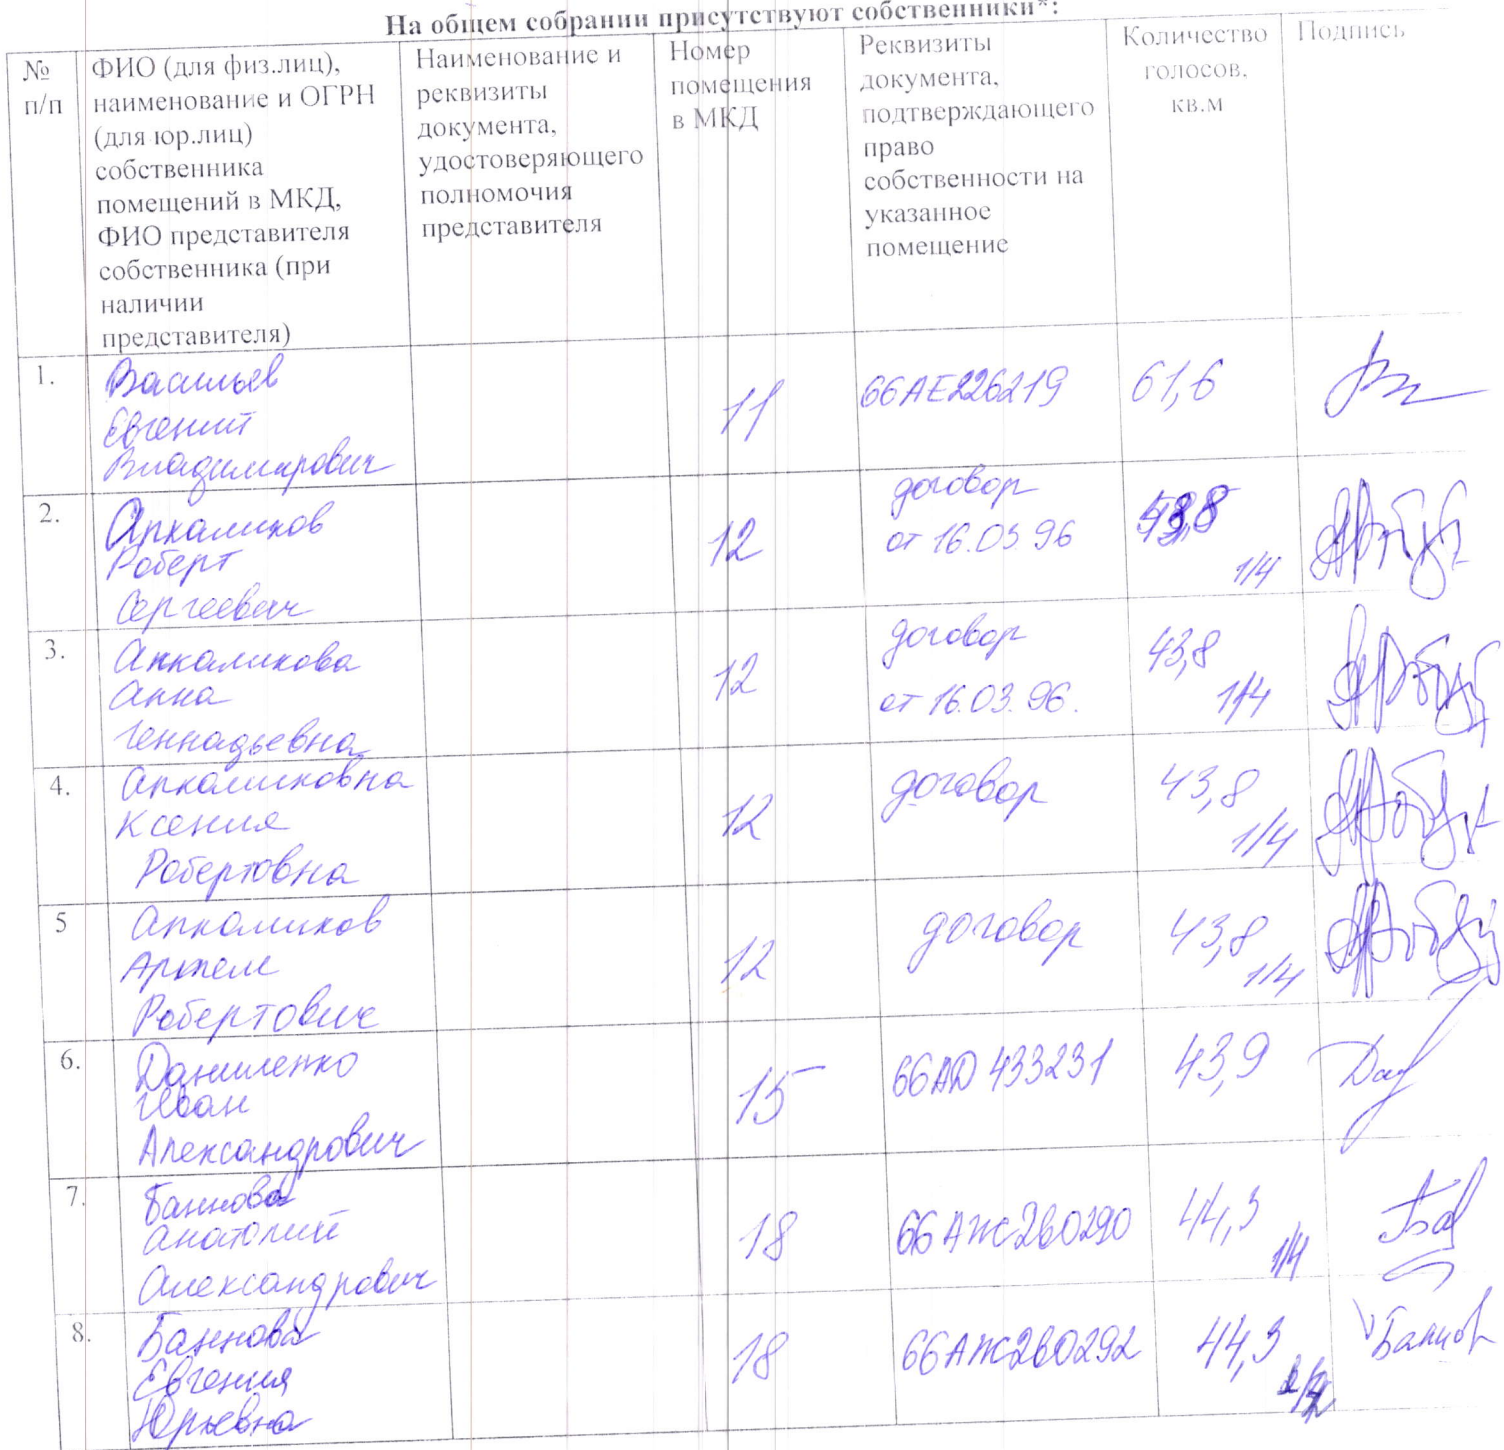 На общем собрании присутствуют собственники*:
№
п/п
ФИО (для физ.лиц),
наименование и ОГРН
(для юр.лиц)
собственника
помещений в МКД,
ФИО представителя
собственника (при
наличии
представителя)
Наименование и
реквизиты
документа,
удостоверяющего
полномочия
представителя
Номер
помещения
в МКД
Реквизиты
документа,
подтверждающего
право
собственности на
указанное
помещение
Количество
голосов,
кв.м
Подпись
1.
Васильев
Евгений
Владимирович
11
66АЕ226219
61,6
2.
Апкаликов
Роберт
Сергеевич
12
договор
от 16.03.96
43,8
1/4
3.
Апкаликова
Анна
Геннадьевна
12
договор
от 16.03.96.
43,8
1/4
4.
Апкаликовна
Ксения
Робертовна
12
договор
43,8
1/4
5
Апкаликов
Артем
Робертович
12
договор
43,8
1/4
6.
Даниленко
Иван
Александрович
15
66АД 433231
43,9
7.
Баннова
Анатолий
Александрович
18
66АЖ260290
44,3
1/4
8.
Баннова
Евгения
Юрьевна
18
66АЖ260292
44,3